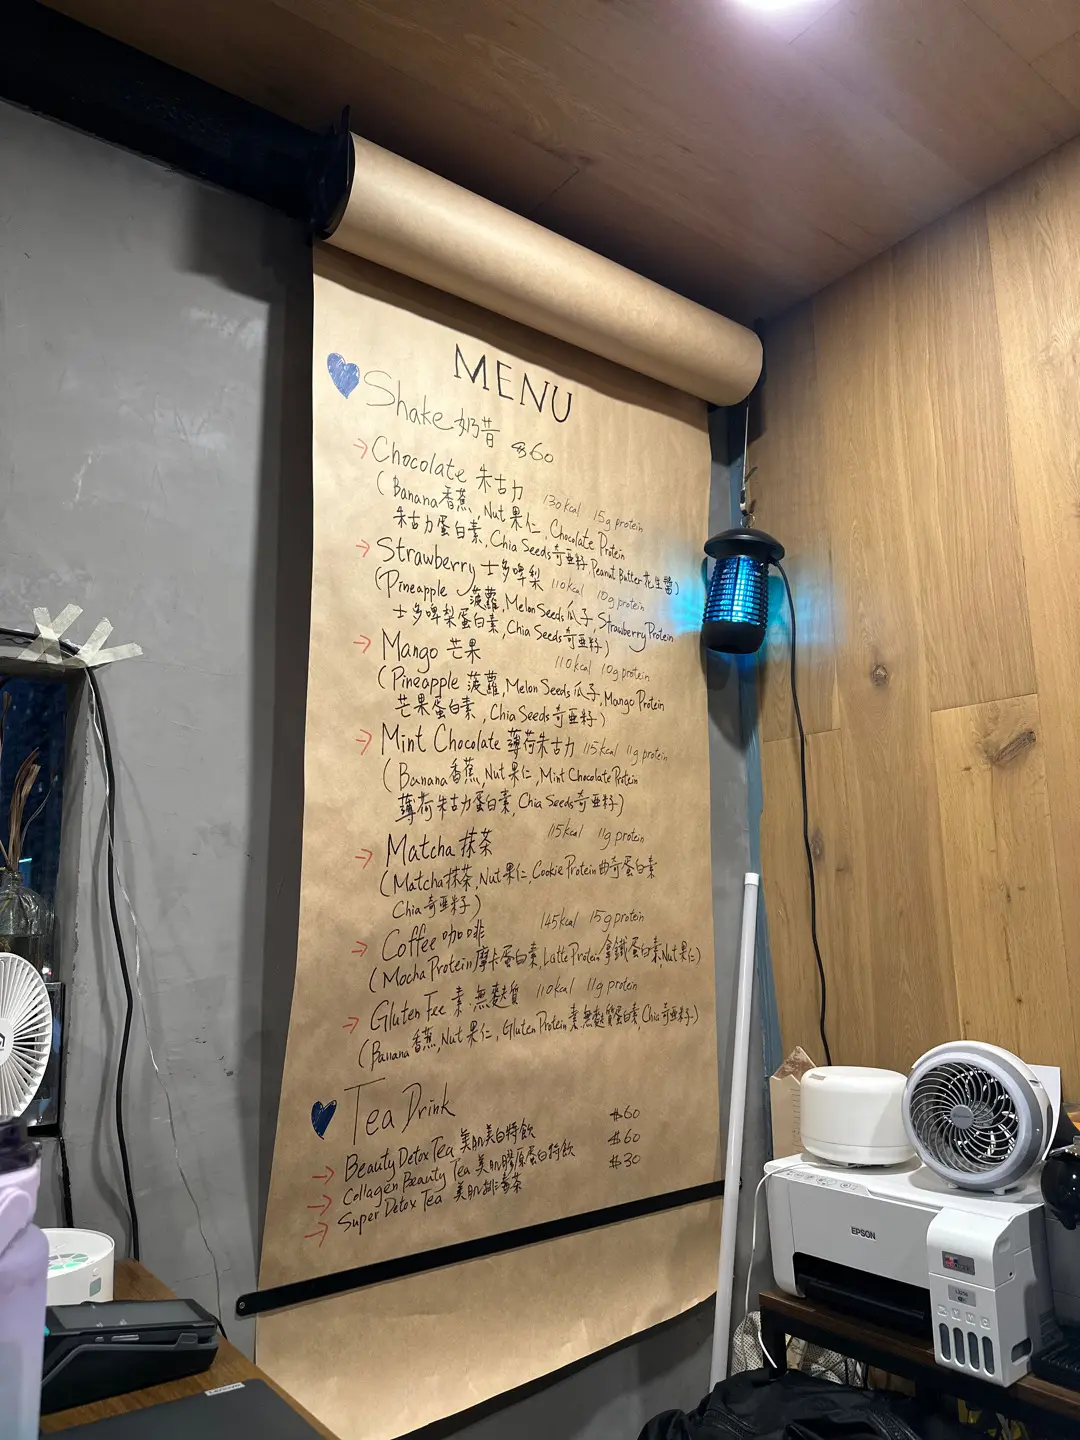 MENU
Shake 奶昔 $60
→ Chocolate 朱古力 130kcal 15g protein
( Banana 香蕉, Nut 果仁, Chocolate Protein
朱古力蛋白素, Chia Seeds 奇亞籽, Peanut Butter 花生醬)
→ Strawberry 士多啤梨 110kcal 10g protein
(Pineapple 菠蘿, Melon Seeds 瓜子, Strawberry Protein
士多啤梨蛋白素, Chia Seeds 奇亞籽)
→ Mango 芒果 110kcal 10g protein
(Pineapple 菠蘿, Melon Seeds 瓜子, Mango Protein
芒果蛋白素, Chia Seeds 奇亞籽)
→ Mint Chocolate 薄荷朱古力 115kcal 11g protein
( Banana 香蕉, Nut 果仁, Mint Chocolate Protein
薄荷朱古力蛋白素, Chia Seeds 奇亞籽)
→ Matcha 抹茶 115kcal 11g protein
(Matcha 抹茶, Nut 果仁, Cookie Protein 曲奇蛋白素
Chia 奇亞籽)
→ Coffee 咖啡 145kcal 15g protein
(Mocha Protein 摩卡蛋白素, Latte Protein 拿鐵蛋白素, Nut 果仁)
→ Gluten Fee 素.無麩質 110kcal 11g protein
(Banana 香蕉, Nut 果仁, Gluten Protein 素.無麩質蛋白素, Chia 奇亞籽)
Tea Drink
→ Beauty Detox Tea 美肌美白特飲 $60
→ Collagen Beauty Tea 美肌膠原蛋白特飲 $60
→ Super Detox Tea 美肌排毒茶 $30
EPSON